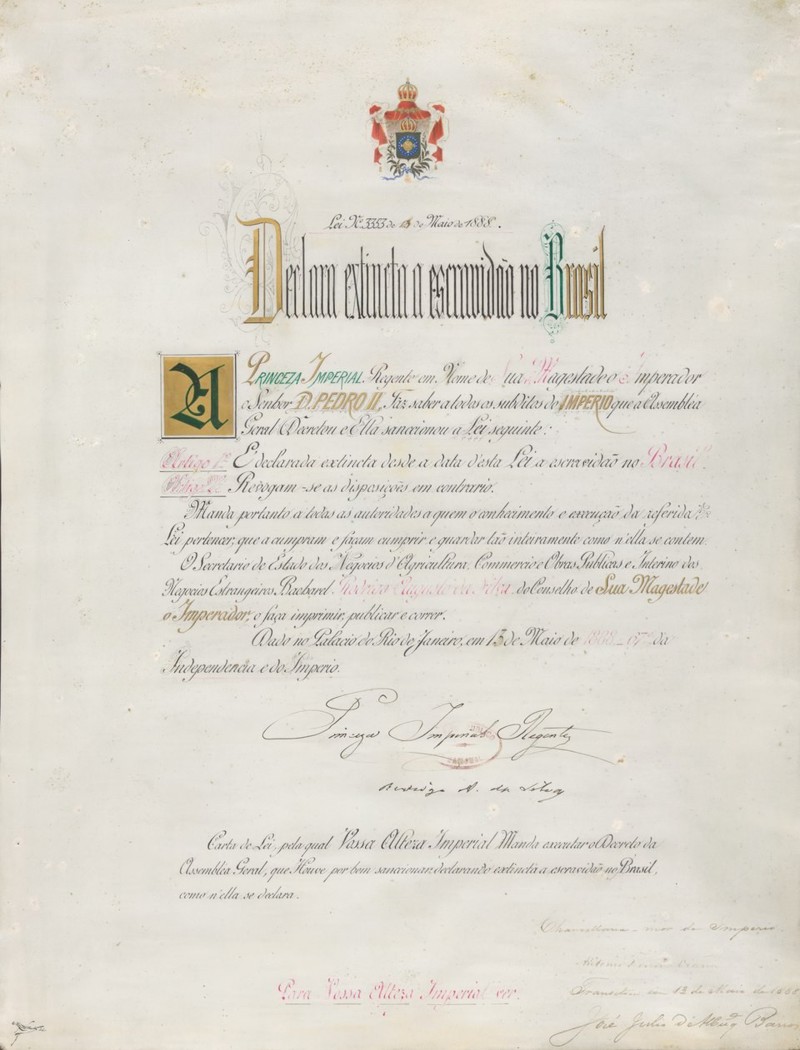 Lei Nº 3353 de 13 de Maio de 1888.
Declara extincta a escravidão no Brasil
A PRINCEZA IMPERIAL Regente em Nome de Sua Magestade o Imperador
o Senhor D. PEDRO II, Faz saber a todos os subditos do IMPERIO que a Assemblea
Geral Decretou e Ella sanccionou a Lei seguinte:
Artigo 1º É declarada extincta desde a data d'esta Lei a escravidão no Brasil.
Artigo 2º Revogam-se as disposições em contrario.
Manda portanto a todas as autoridades a quem o conhecimento e execução da referida
Lei pertencer, que a cumpram e façam cumprir e guardar tão inteiramente como n'ella se contem.
O Secretario de Estado dos Negocios d'Agricultura, Commercio e Obras Publicas e Interino dos
Negocios Estrangeiros Bacharel Rodrigo Augusto da Silva, do Conselho de Sua Magestade
o Imperador, o faça imprimir, publicar e correr.
Dado no Palacio do Rio de Janeiro, em 13 de Maio de 1888 - 67º da
Independencia e do Imperio.
Princeza Imperial Regente
Rodrigo A. da Silva
Carta de Lei, pela qual Vossa Alteza Imperial Manda executar o Decreto da
Assembléa Geral, que Houve por bem sanccionar, declarando extincta a escravidão no Brasil,
como n'ella se declara.
Chancellaria-mor do Imperio
Transitou em 13 de Maio de 1888
José Julio d'Albuqº Barros
Para Vossa Alteza Imperial ver.